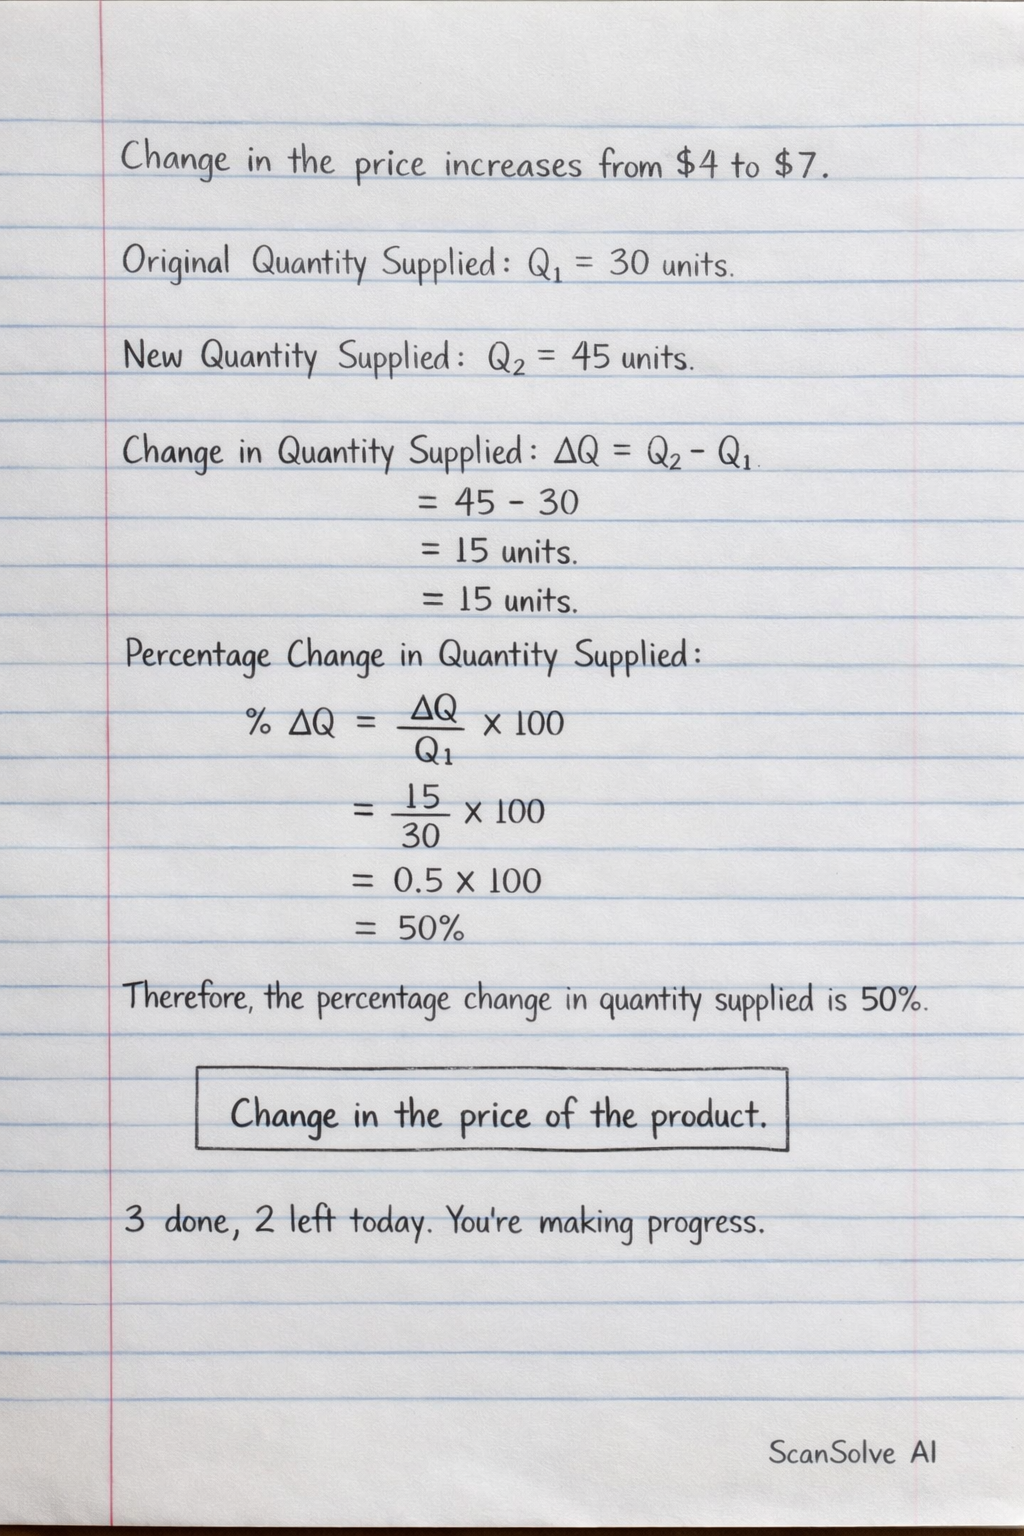 Change in the price increases from $4 to $7.
Original Quantity Supplied: Q₁ = 30 units.
New Quantity Supplied: Q₂ = 45 units.
Change in Quantity Supplied: ΔQ = Q₂ - Q₁.
= 45 - 30
= 15 units.
= 15 units.
Percentage Change in Quantity Supplied:
% ΔQ = ΔQ/Q₁ × 100
= 15/30 × 100
= 0.5 × 100
= 50%
Therefore, the percentage change in quantity supplied is 50%.
Change in the price of the product.
3 done, 2 left today. You're making progress.
ScanSolve AI